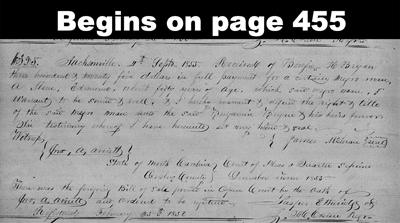 Begins on page 455
$325. Jacksonville, 4th Sept. 1855. Received of Benja. H Bryan
three hundred & twenty five dollars in full payment for a certain negro man,
a Slave, Edmund, about forty years of age, which said negro man, I
Warrant to be sound & well. I hereby warrant & defend the right & title
of the said negro man unto the said Benjamin Bryan & his heirs forever
In testimony whereof I have hereunto set my hand & seal.
Witness
Jas. A. Averitt
State of North Carolina Court of Pleas & Quarter Sessions
Onslow County December 1855
Then was the foregoing Bill of Sale proved in Open Court by the Oath of
Jas. A. Averitt and ordered to be registered
Jasper Etheridge Clk
Registered February 1856